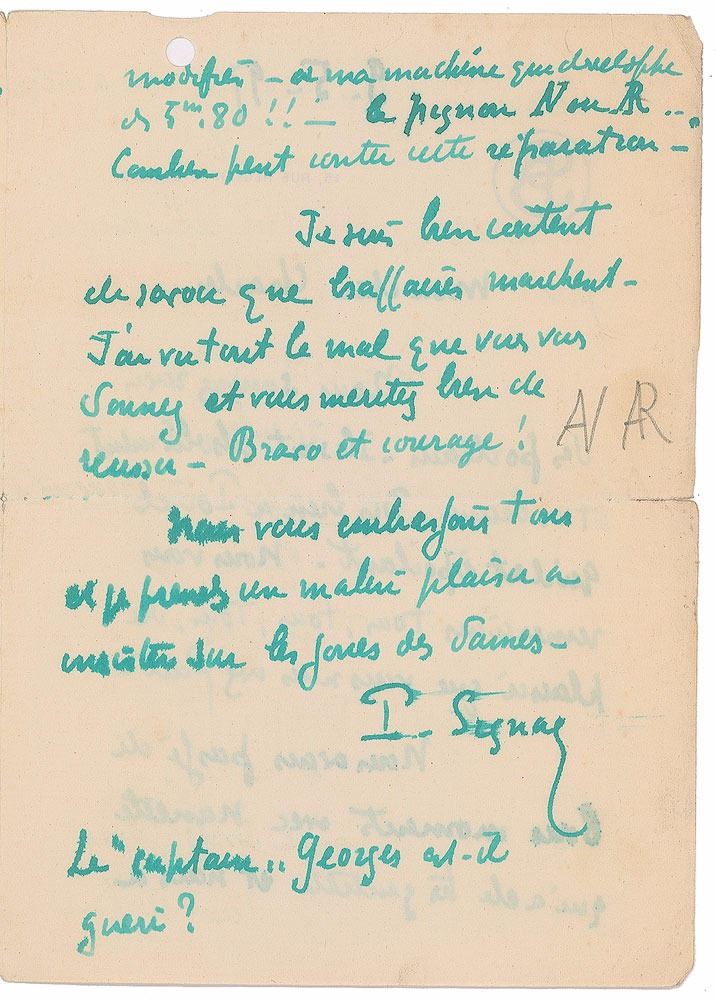 modifié — de ma machine qui developpe
des 5m.80 !! — le pignon N ou AR ...
Combien peut couter cette réparation —
Je suis bien content
de savoir que les affaires marchent —
J'ai vu tout le mal que vous vous
donnez et vous meritez bien de
reussir — Bravo et courage !
AV AR
Nous vous embrassons tous
et je prends un malin plaisir a
insister sur les joues des dames —
P. Signac
Le "captain" Georges est-il
gueri ?